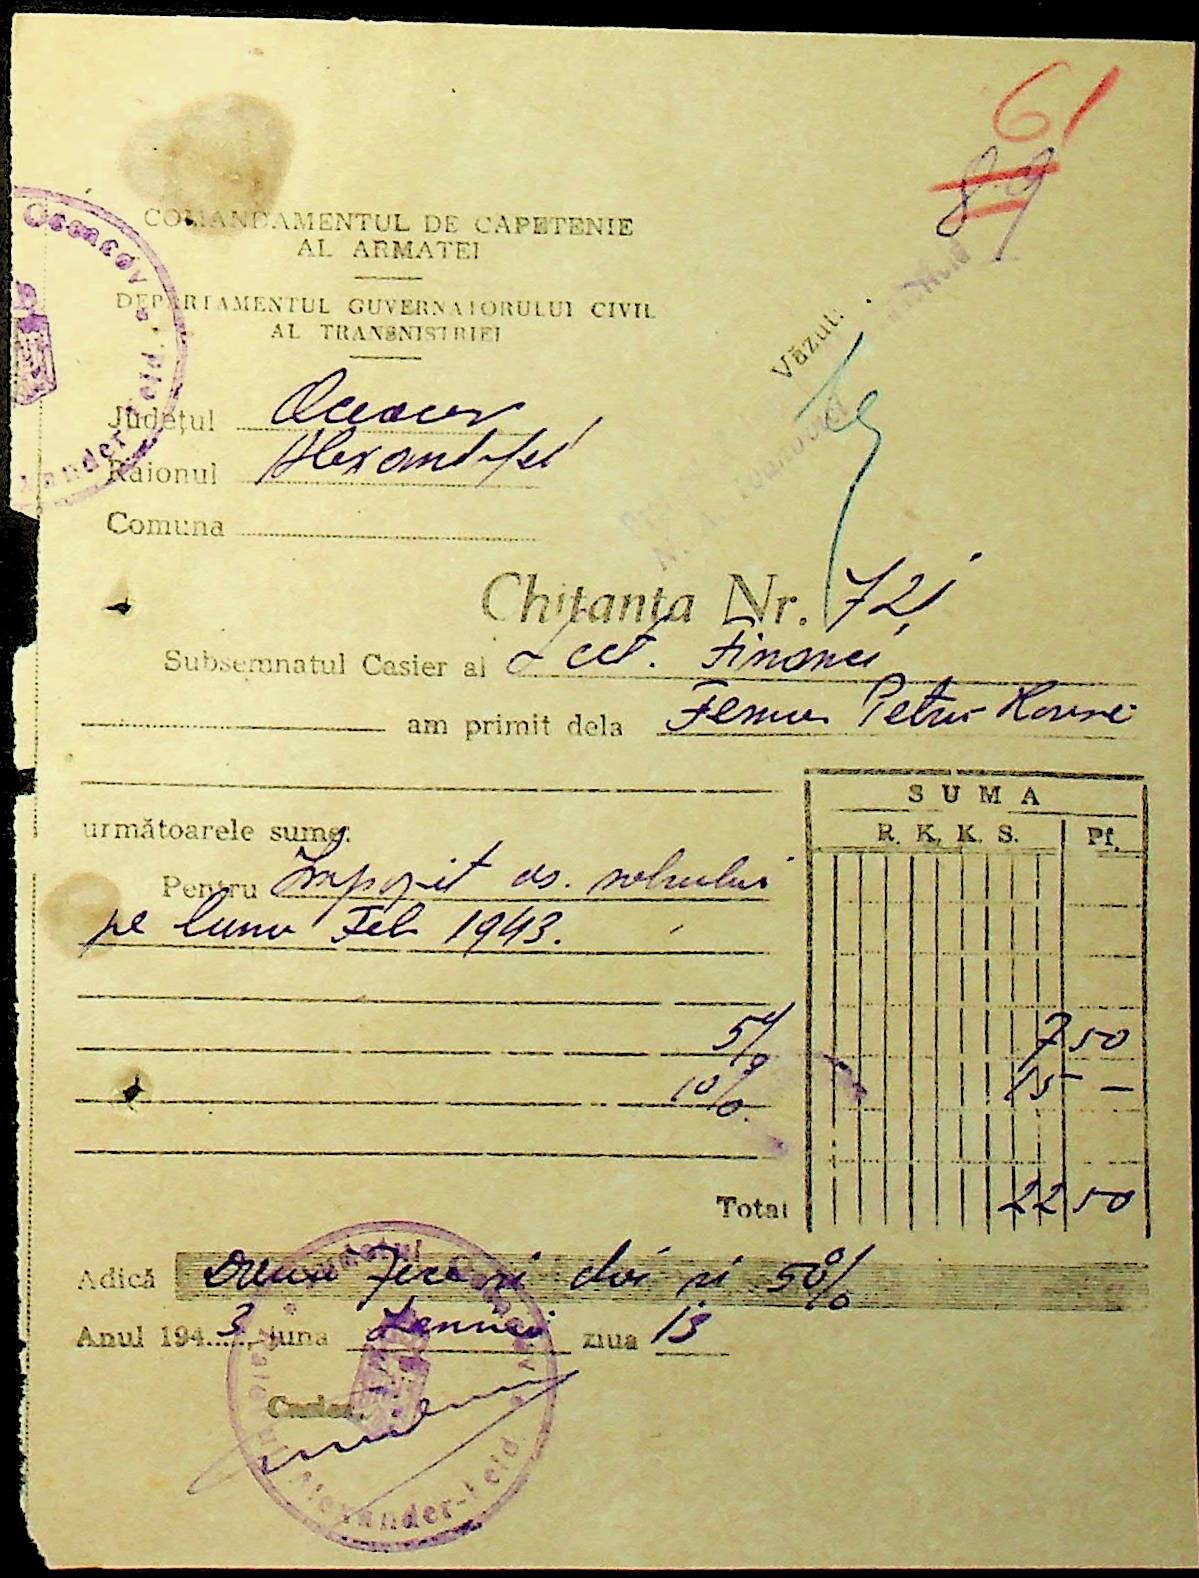 61
89
COMANDAMENTUL DE CAPETENIE
AL ARMATEI
DEPARTAMENTUL GUVERNATORULUI CIVIL
AL TRANSNISTRIEI
Văzut:
Județul Oceacov
Raionul Alexandrfeld
Comuna
Chitanța Nr. 721
Subsemnatul Casier al Sect. Financ
am primit dela Petru
SUMA
următoarele sume:
R. K. K. S. Pf.
Pentru Impozit as.
pe luna Feb 1943.
5% 7 50
10% 15 —
Total 22 50
Adică Douăzeci și doi și 50%
Anul 1943 luna ziua 13
Casier,
Județul Oceacov
Raionul Alexander-Feld